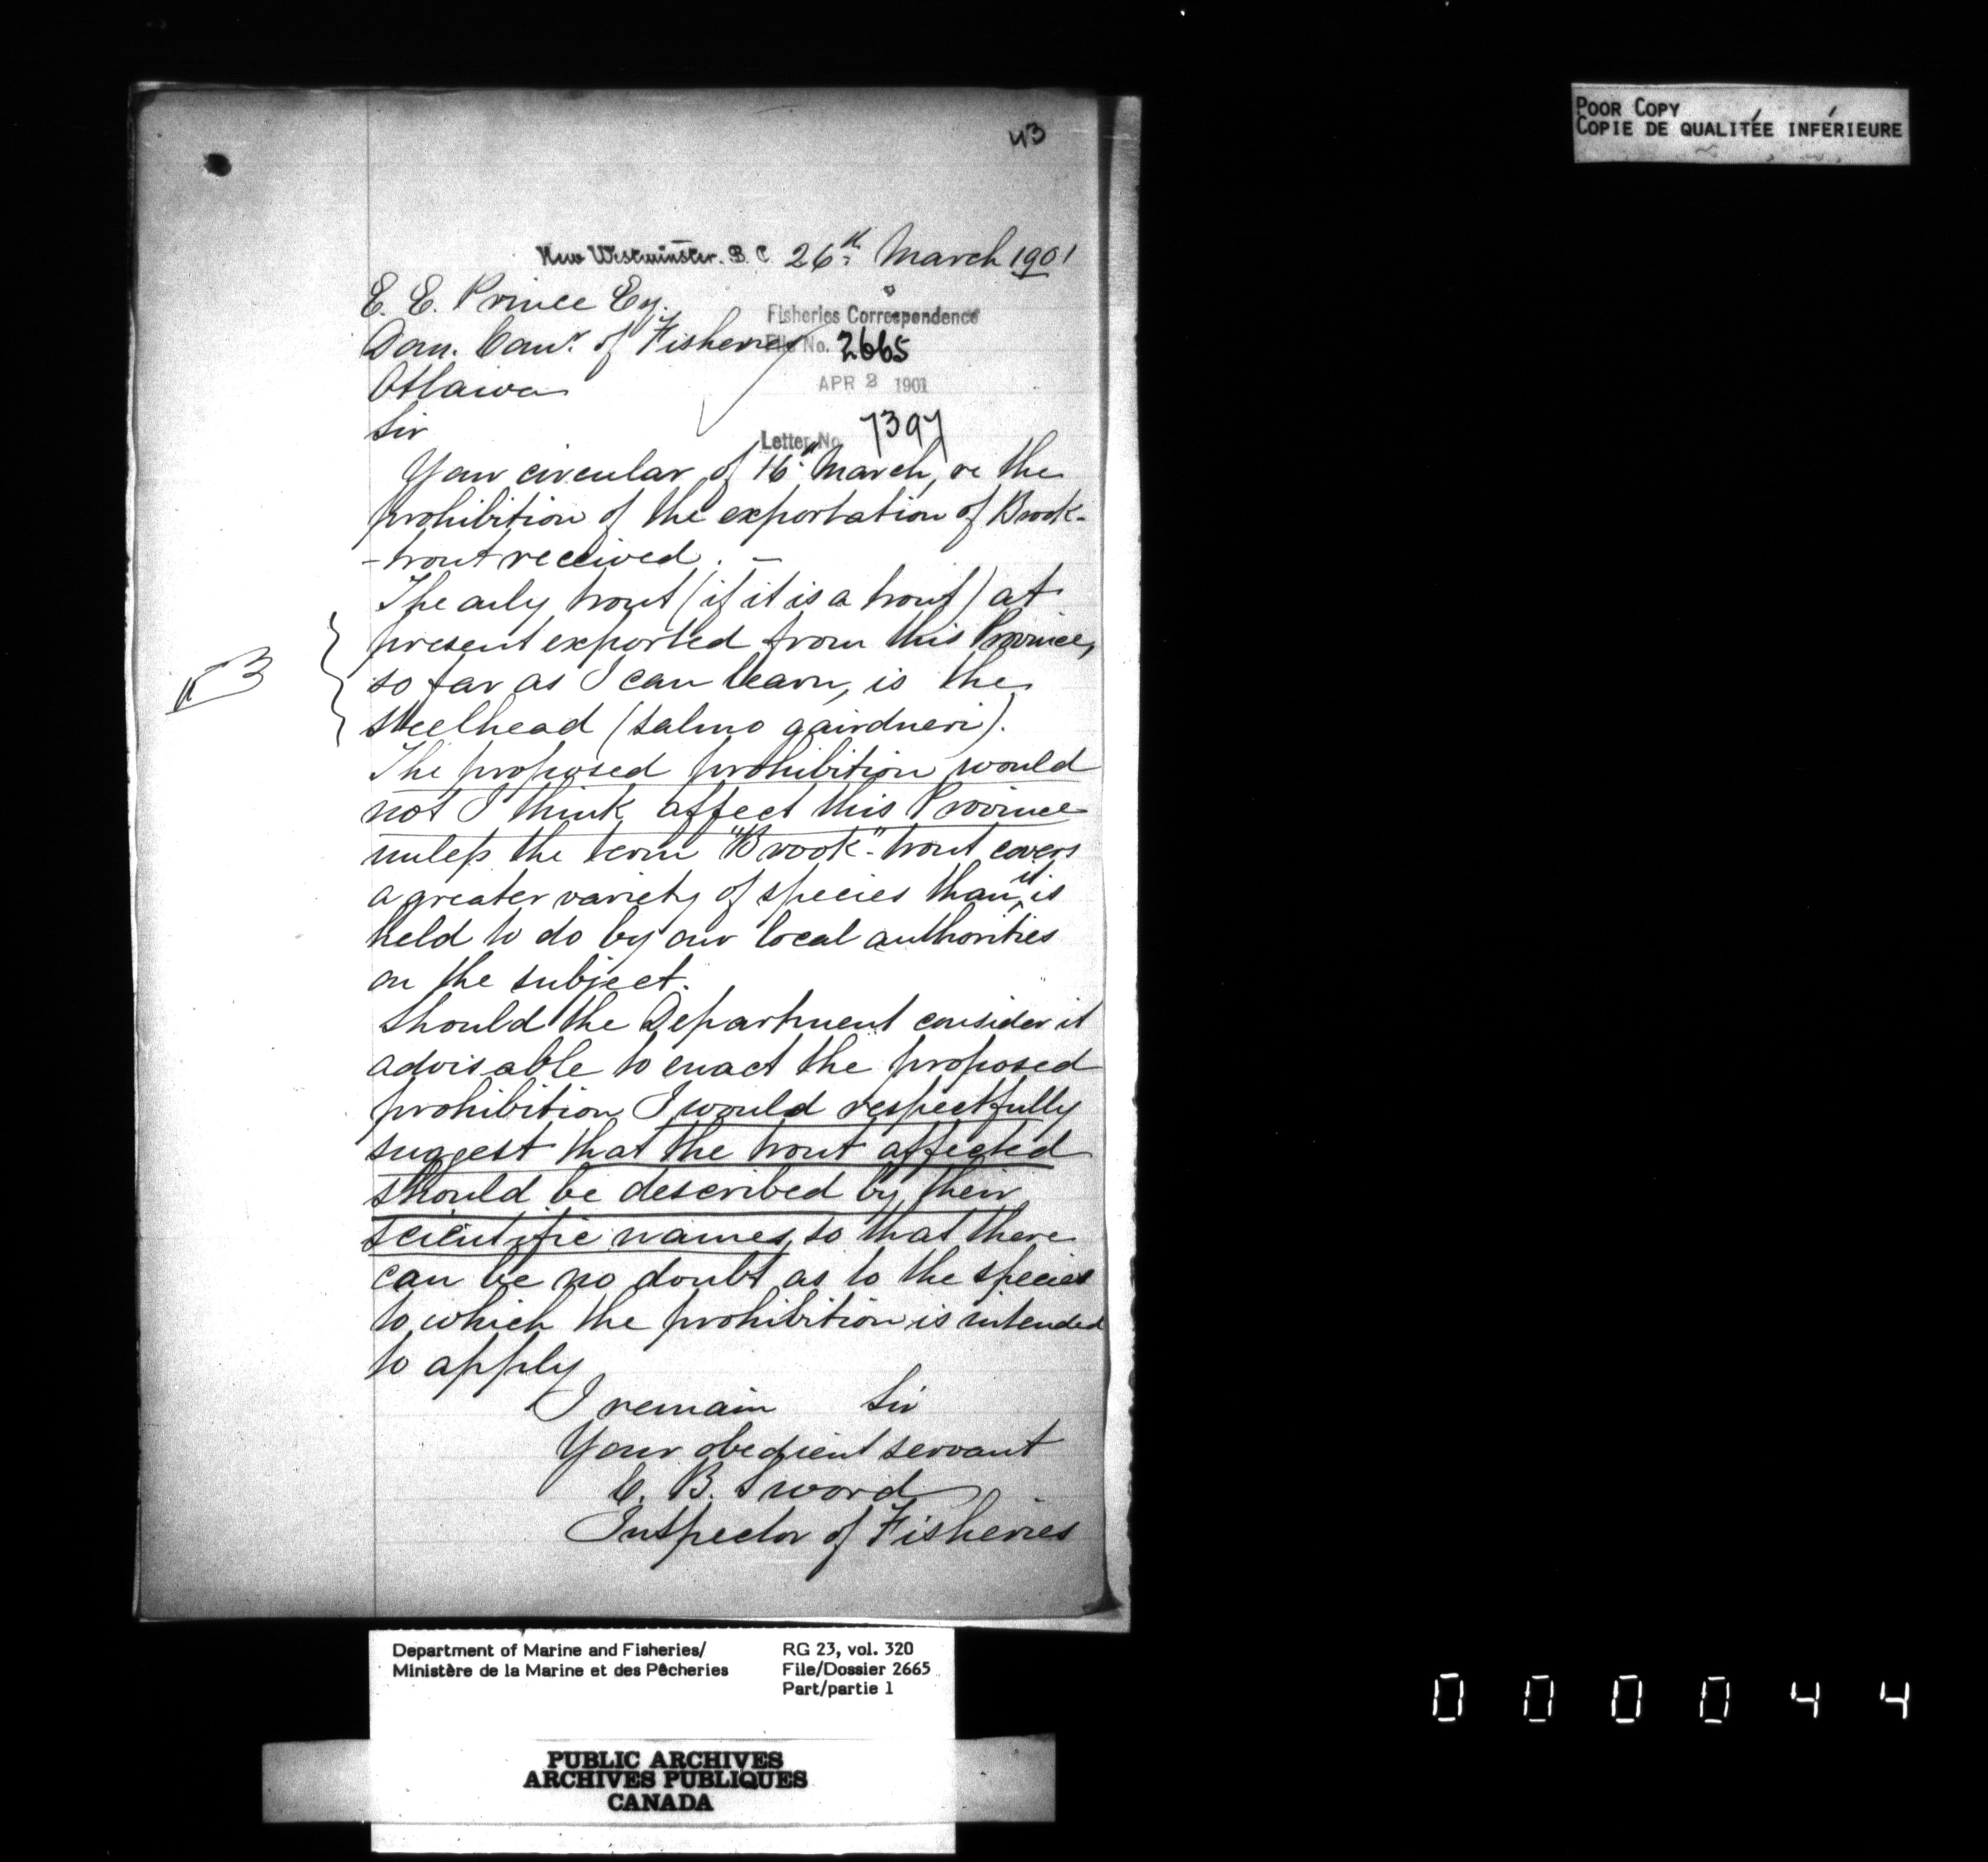 POOR COPY
COPIE DE QUALITÉE INFÉRIEURE
43
New Westminster. B. C. 26th March 1901
E. E. Prince Esq.
Dom. Comr. of Fisheries
Ottawa
Fisheries Correspondence
File No. 2665
APR 2 1901
Letter No. 7397
Sir
Your circular of 16th March, re the
prohibition of the exportation of Brook-
-trout received. -
The only trout (if it is a trout) at
present exported from this Province,
so far as I can learn, is the
steelhead (salmo gairdneri).
The proposed prohibition would
not I think affect this Province
unless the term "Brook"-trout covers
a greater variety of species than it is
held to do by our local authorities
on the subject.
Should the Department consider it
advisable to enact the proposed
prohibition I would respectfully
suggest that the trout affected
should be described by their
scientific names, so that there
can be no doubt as to the species
to which the prohibition is intended
to apply
I remain Sir
Your obedient servant
C. B. Sword
Inspector of Fisheries
Department of Marine and Fisheries/
Ministère de la Marine et des Pêcheries
RG 23, vol. 320
File/Dossier 2665
Part/partie 1
PUBLIC ARCHIVES
ARCHIVES PUBLIQUES
CANADA
000044